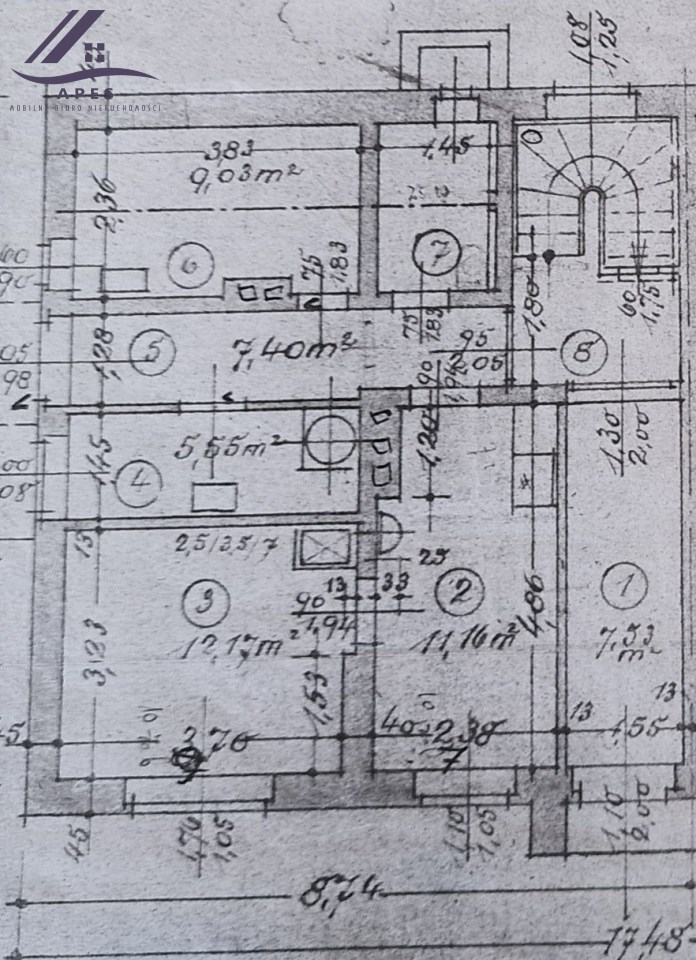 APES
MOBILNE BIURO NIERUCHOMOŚCI
1,08
1,25
3,83
9,03 m²
1,45
2,36
6
7
75
1,83
60
1,75
1,80
60
90
5
7,40 m²
1,28
75
1,83
95
2,05
8
05
98
90
1,94
1,20
1,30
2,00
4
5,55 m²
1,45
00
08
13
2,5/3,5/7
25
3
12,17 m²
13
33
90
1,94
2
11,16 m²
4,86
1
7,53
m²
3,23
1,53
13
13
45
2,70
40
2,38
7
1,55
45
1,70
1,05
1,10
1,05
1,10
2,00
8,74
17,48